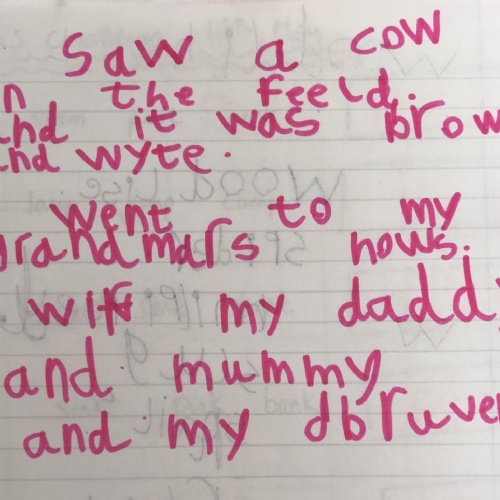 Saw a cow
n the feeld.
and it was brow
and wyte.
went to my
grandmars hows.
wif my daddy
and mummy
and my dbruver